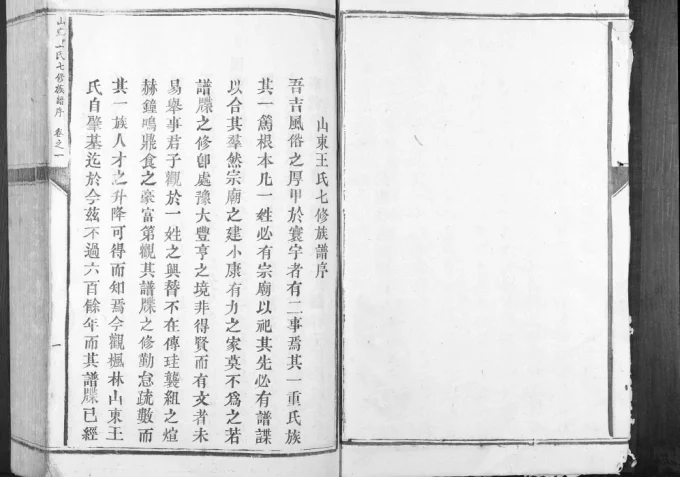 山東王氏七修族譜序
吾吉風俗之厚甲於寰宇者有二事焉其一重氏族
其一篤根本凡一姓必有宗廟以祀其先必有譜諜
以合其羣然宗廟之建小康有力之家莫不爲之若
譜牒之修卽處豫大豐亨之境非得賢而有文者未
易舉事君子觀於一姓之興替不在傳珪襲組之煊
赫鐘鳴鼎食之豪富第觀其譜牒之修勤怠疏數而
其一族人才之升降可得而知焉今觀楓林山東王
氏自肇基迄於今茲不過六百餘年而其譜牒已經
山東王氏七修族譜序 卷之一
一